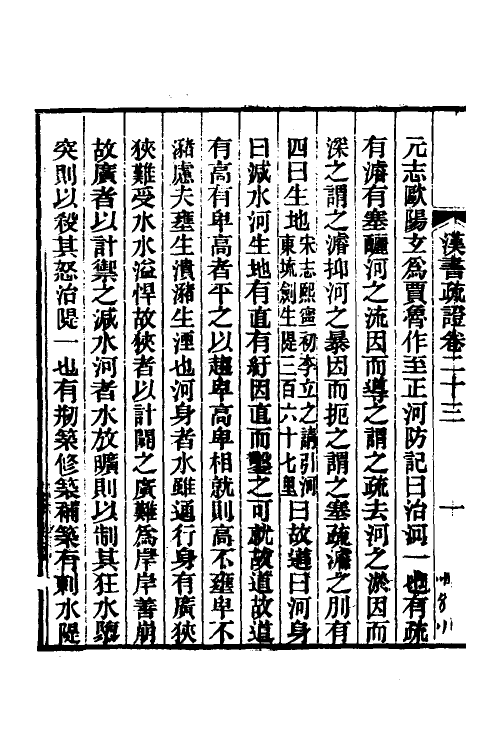 漢書疏證卷二十三
一
元志歐陽玄爲賈魯作至正河防記曰治河一也有疏
有濬有塞釃河之流因而導之謂之疏去河之淤因而
深之謂之濬抑河之暴因而扼之謂之塞疏濬之別有
四曰生地宋志熙寧初李立之議引河東㙮剏生隄三百六十七里曰故道曰河身
曰減水河生地有直有紆因直而鑿之可就故道故道
有高有卑高者平之以趨卑高卑相就則高不壅卑不
瀦慮夫壅生潰瀦生湮也河身者水雖通行身有廣狹
狹難受水水溢悍故狹者以計闢之廣難爲岸岸善崩
故廣者以計禦之減水河者水放曠則以制其狂水隳
突則以殺其怒治隄一也有刱築修築補築有刺水隄